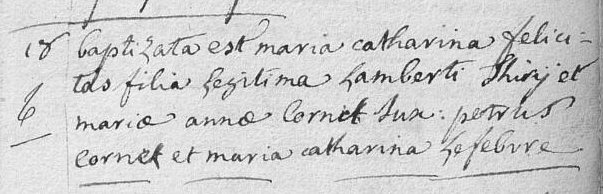 18 baptizata est maria catharina felici=
tas filia legitima Lamberti Thirij et
6 mariæ annæ Cornet sux: petrus
cornet et maria catharina Lefebvre